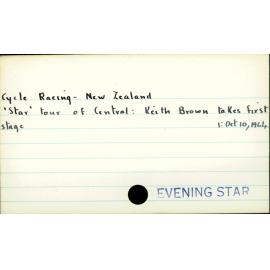 Cycle Racing - New Zealand
'Star' tour of Central: Keith Brown takes first
stage 1: Oct 10, 1964
EVENING STAR